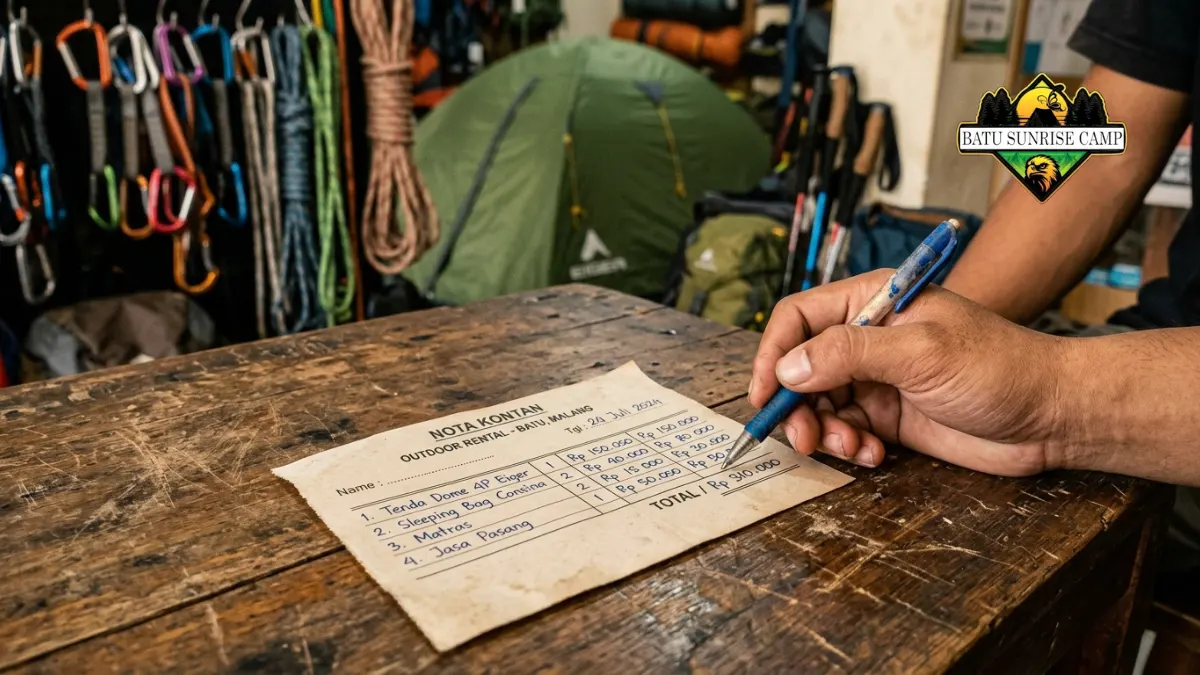 BATU SUNRISE CAMP
EIGER
NOTA KONTAN
OUTDOOR RENTAL - BATU, MALANG
Tgl: 24 Juli 2024
Name :
1. Tenda Dome 4P Eiger 1 Rp 150.000 Rp 150.000
2. Sleeping Bag Consina 2 Rp 40.000 Rp 80.000
3. Matras 2 Rp 15.000 Rp 30.000
4. Jasa Pasang 1 Rp 50.000 Rp 50.
TOTAL / Rp 310.000